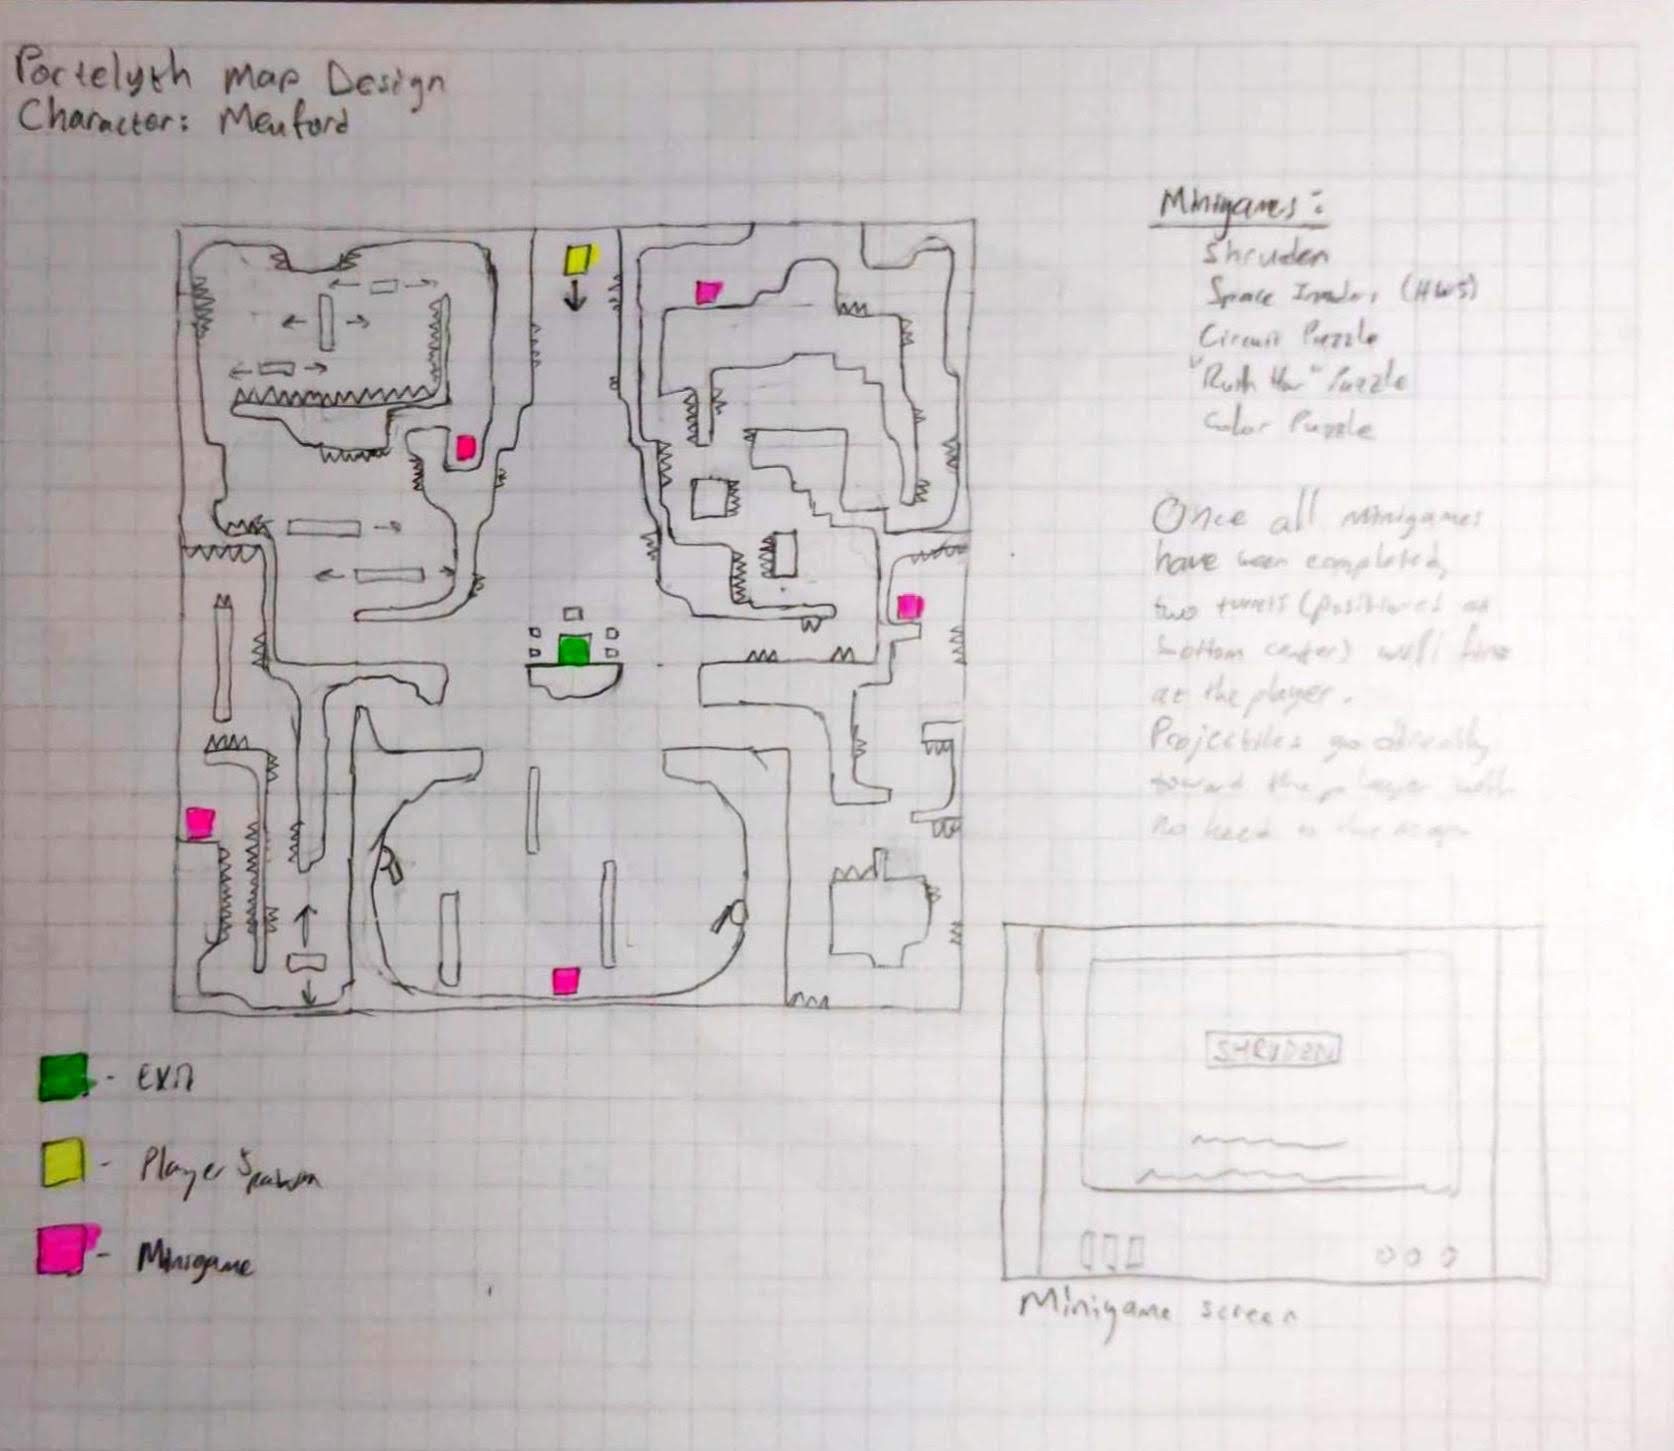 Portelyth Map Design
Character: Menford
Minigames:
Shruden
Space Invaders (HW5)
Circuit Puzzle
"Rush Hour" Puzzle
Color Puzzle
Once all minigames
have been completed,
two turrets (positioned at
bottom center) will fire
at the player.
Projectiles go directly
toward the player with
no
EXIT
Player Spawn
Minigame
SHRUDEN
Minigame screen